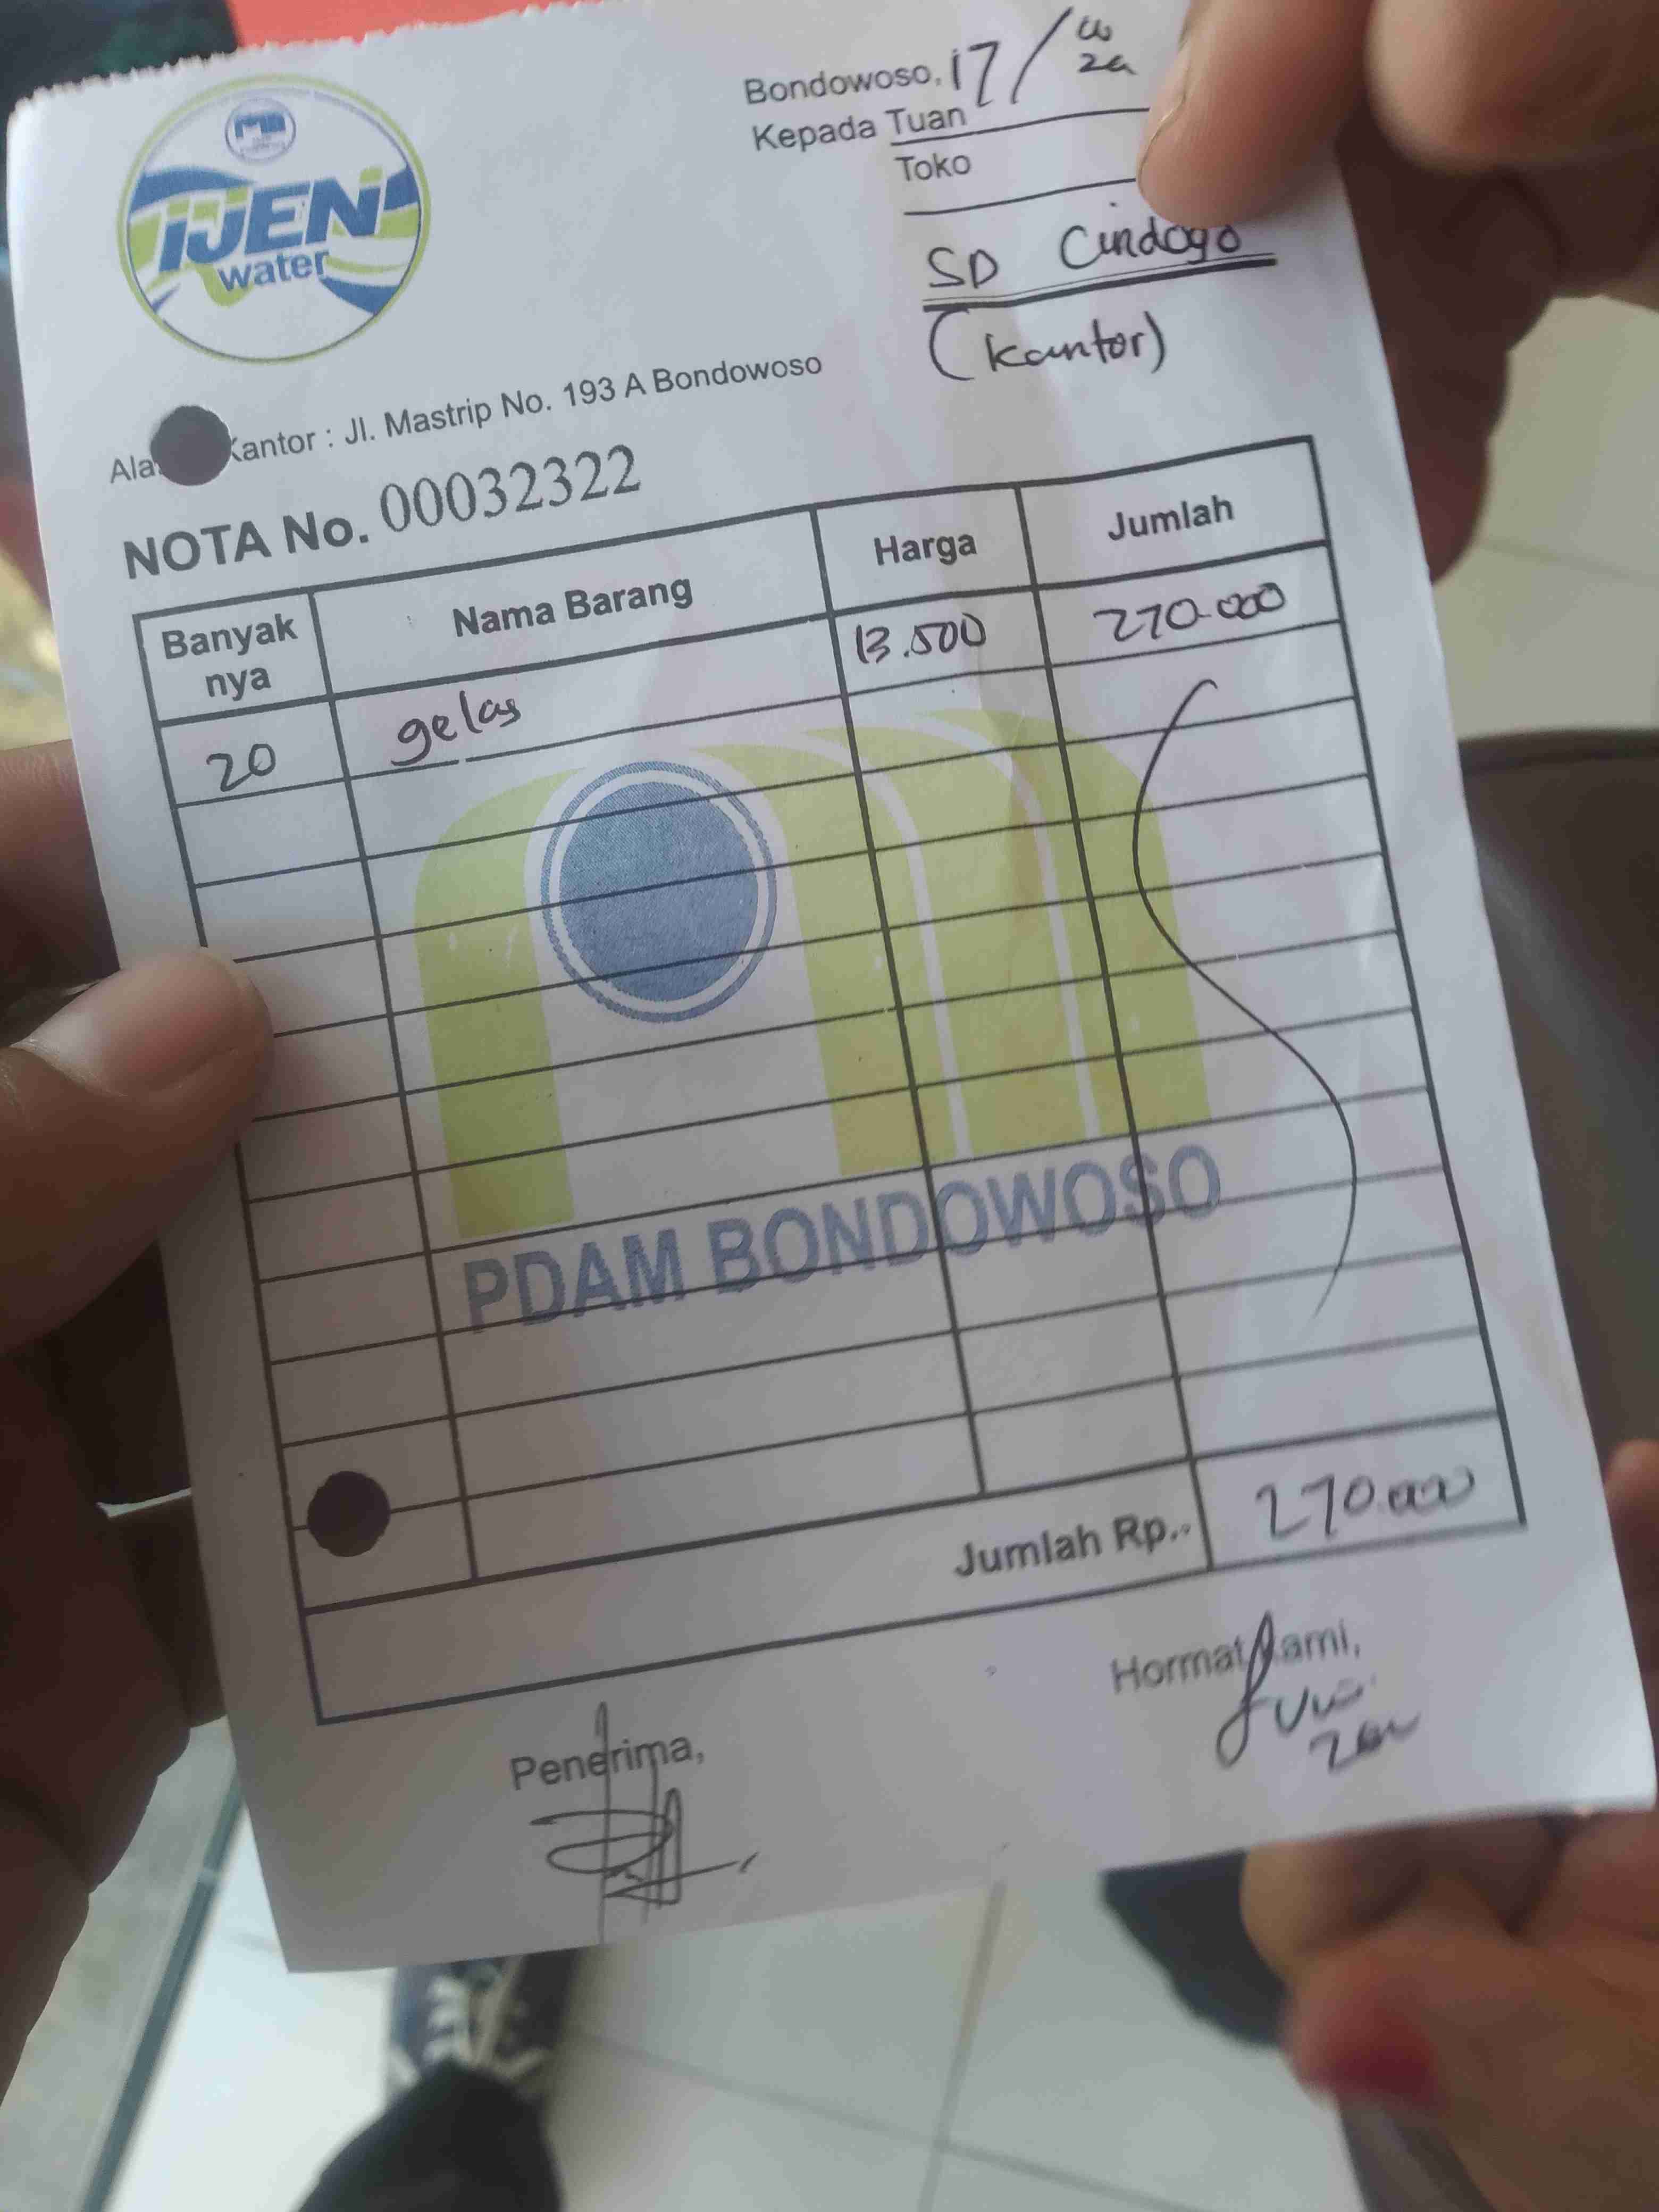 IJEN
water
Bondowoso, 17/
Kepada Tuan
Toko
SD Cindogo
(kantor)
Kantor : Jl. Mastrip No. 193 A Bondowoso
NOTA No. 00032322
Banyak nya Nama Barang Harga Jumlah
20 gelas 13.500 270.000
PDAM BONDOWOSO
Jumlah Rp.. 270.000
Penerima,
Hormat kami,